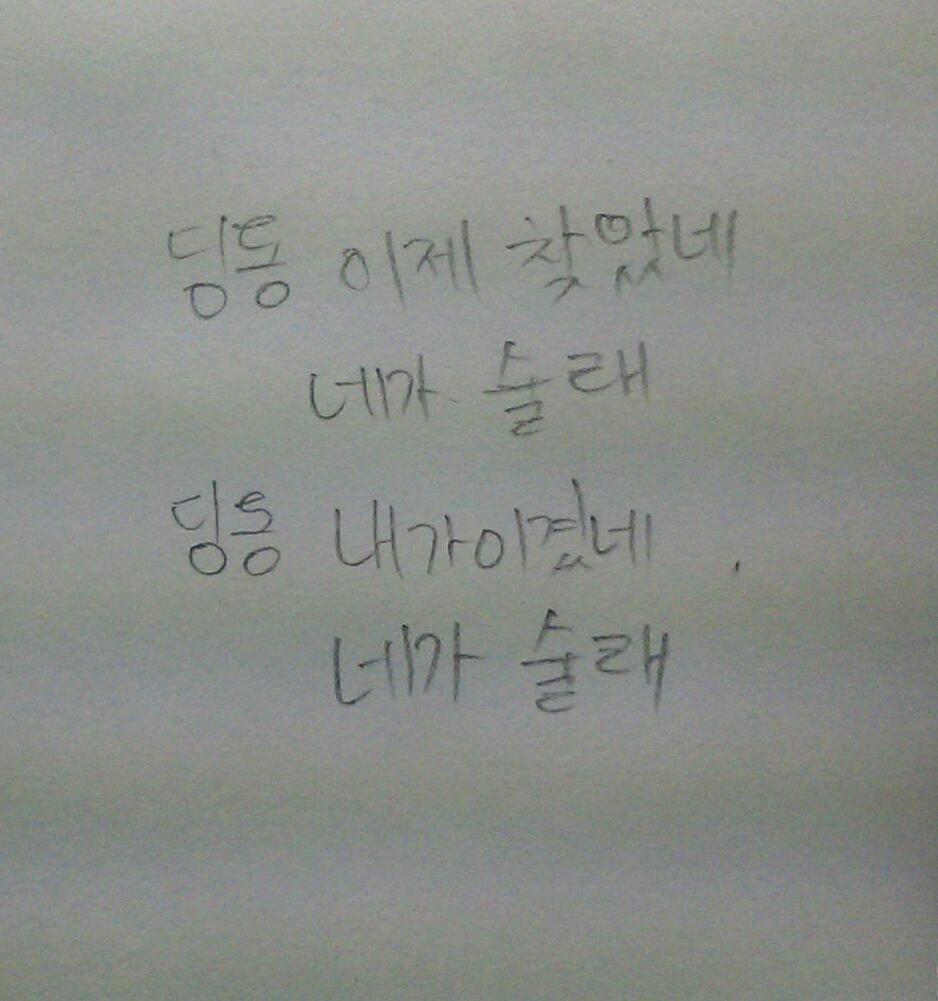 딩동 이제 찾았네
네가 술래
딩동 내가이겼네.
네가 술래